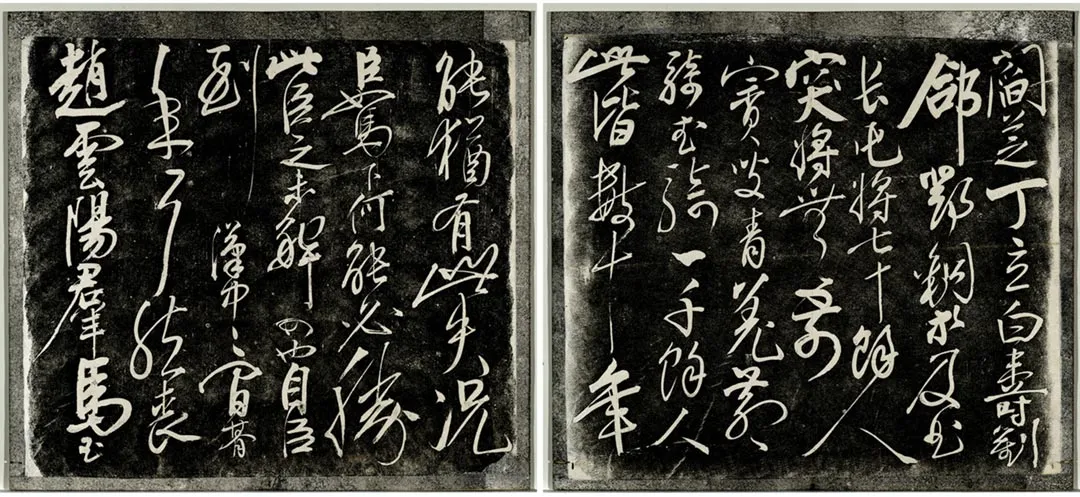 能猶有此失況
臣駑下何能必勝
此臣之未解四也自臣
到漢中〻間朞
年耳然喪
趙雲陽羣馬玉
閻芝丁立白壽劉
郃鄧銅等及曲
長屯將七十餘人
突將無前
賨叟青羌散
騎武騎一千餘人
此皆數十年